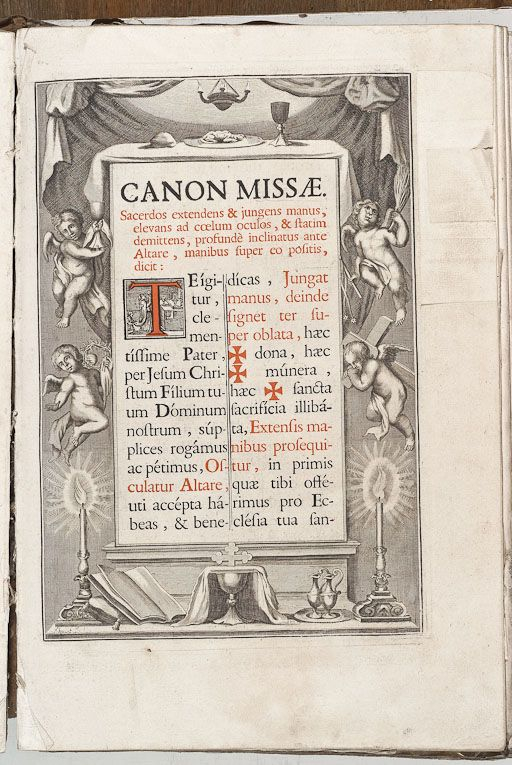 CANON MISSÆ.
Sacerdos extendens & jungens manus,
elevans ad cœlum oculos, & ſtatim
demittens, profundè inclinatus ante
Altare, manibus ſuper eo poſitis,
dicit:
TEígi-
tur,
cle-
men-
tíſſime Pater,
per Jeſum Chri-
ſtum Fílium tu-
um Dóminum
noſtrum, ſúp-
plices rogámus
ac pétimus, Oſ-
culatur Altare,
uti accépta há-
beas, & bene-
dícas, Jungat
manus, deinde
ſignet ter ſu-
per oblata, hæc
✠ dona, hæc
✠ múnera,
hæc ✠ ſancta
ſacrifícia illibá-
ta, Extenſis ma-
nibus proſequi-
tur, in primis
quæ tibi offé-
rimus pro Ec-
cléſia tua ſan-